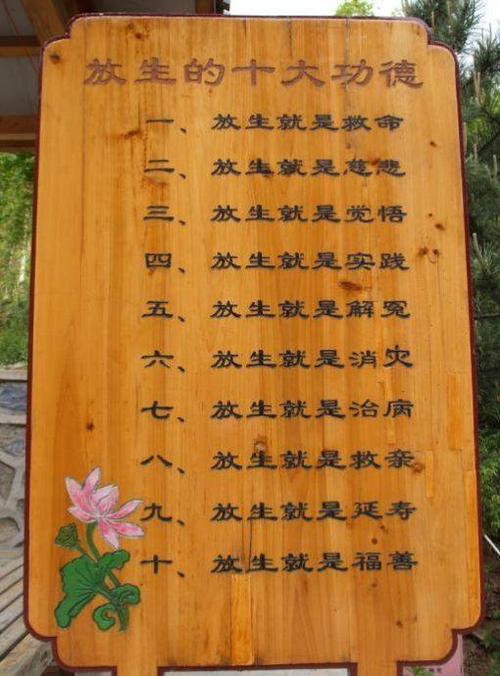 放生的十大功德
一、放生就是救命
二、放生就是慈悲
三、放生就是觉悟
四、放生就是实践
五、放生就是解冤
六、放生就是消灾
七、放生就是治病
八、放生就是救亲
九、放生就是延寿
十、放生就是福善